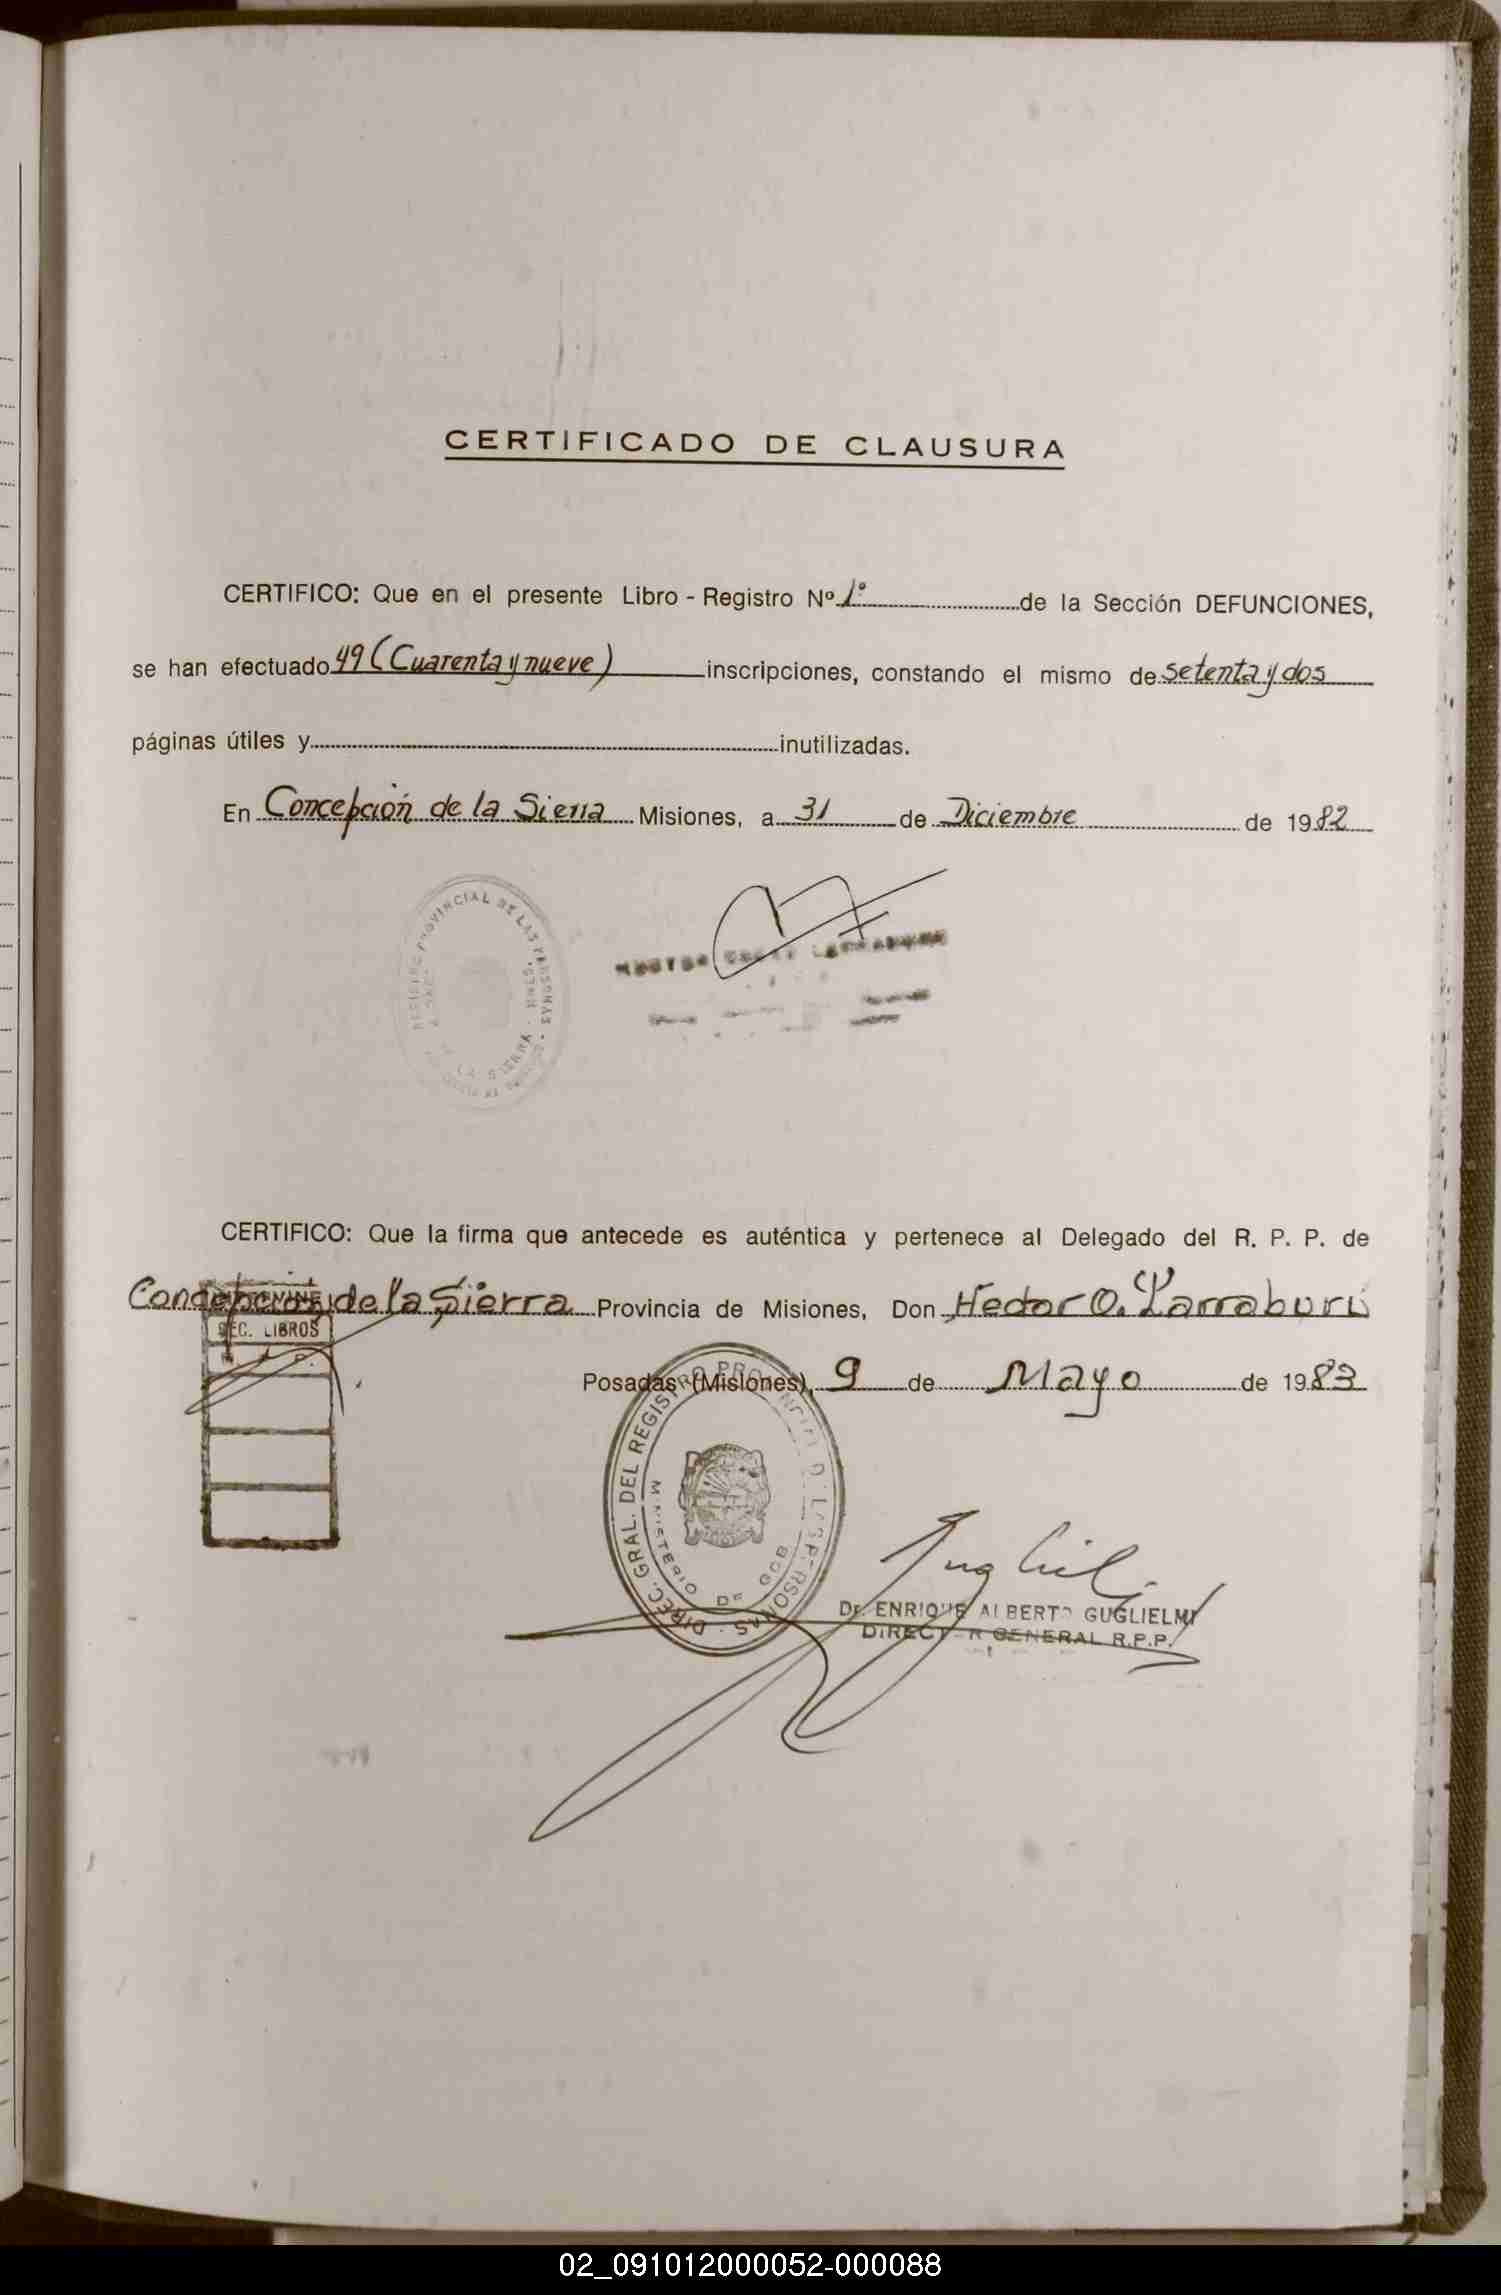 CERTIFICADO DE CLAUSURA
CERTIFICO: Que en el presente Libro - Registro Nº 1º de la Sección DEFUNCIONES,
se han efectuado 49 (Cuarenta y nueve) inscripciones, constando el mismo de setenta y dos
páginas útiles y inutilizadas.
En Concepción de la Sierra Misiones, a 31 de Diciembre de 1982
REGISTRO PROVINCIAL DE LAS PERSONAS
LA SIERRA
CERTIFICO: Que la firma que antecede es auténtica y pertenece al Delegado del R. P. P. de
Concepción de la Sierra Provincia de Misiones, Don Hector O. Larraburu
SEC. LIBROS
Posadas (Misiones), 9 de Mayo de 1983
DIREC. GRAL. DEL REGISTRO PROVINCIAL DE LAS PERSONAS
MINISTERIO DE GOB
Dr. ENRIQUE ALBERTO GUGLIELMI
DIRECTOR GENERAL R.P.P.
02_091012000052-000088